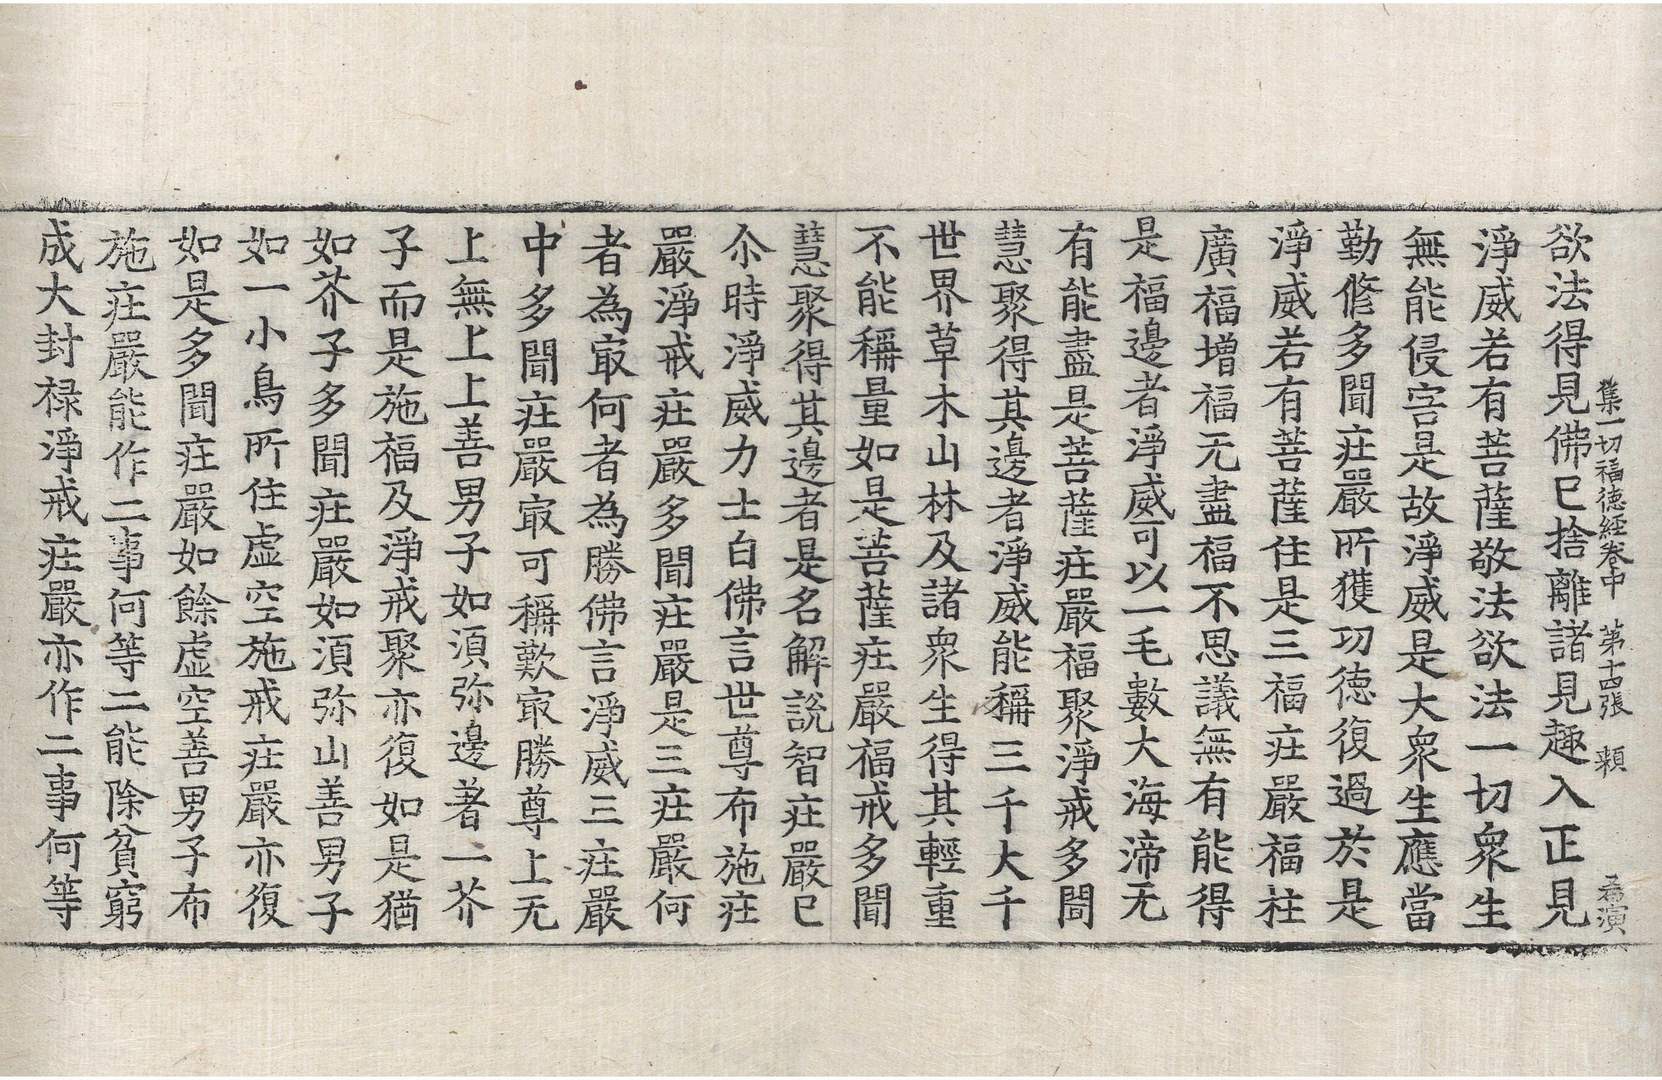 集一切福德經卷中 第十四張 頼 為演
欲法得見佛已捨離諸見趣入正見
淨威若有菩薩敬法欲法一切衆生
無能侵害是故淨威是大衆生應當
勤修多聞莊嚴所獲功德復過於是
淨威若有菩薩住是三福莊嚴福柱
廣福增福无盡福不思議無有能得
是福邊者淨威可以一毛數大海渧无
有能盡是菩薩莊嚴福聚淨戒多聞
慧聚得其邊者淨威能稱三千大千
世界草木山林及諸衆生得其輕重
不能稱量如是菩薩莊嚴福戒多聞
慧聚得其邊者是名解說智莊嚴已
尒時淨威力士白佛言世尊布施莊
嚴淨戒莊嚴多聞莊嚴是三莊嚴何
者為㝡何者為勝佛言淨威三莊嚴
中多聞莊嚴㝡可稱歎㝡勝尊上无
上無上上善男子如湏弥邊著一芥
子而是施福及淨戒聚亦復如是猶
如芥子多聞莊嚴如湏弥山善男子
如一小鳥所住虛空施戒莊嚴亦復
如是多聞莊嚴如餘虛空善男子布
施莊嚴能作二事何等二能除貧窮
成大封禄淨戒莊嚴亦作二事何等